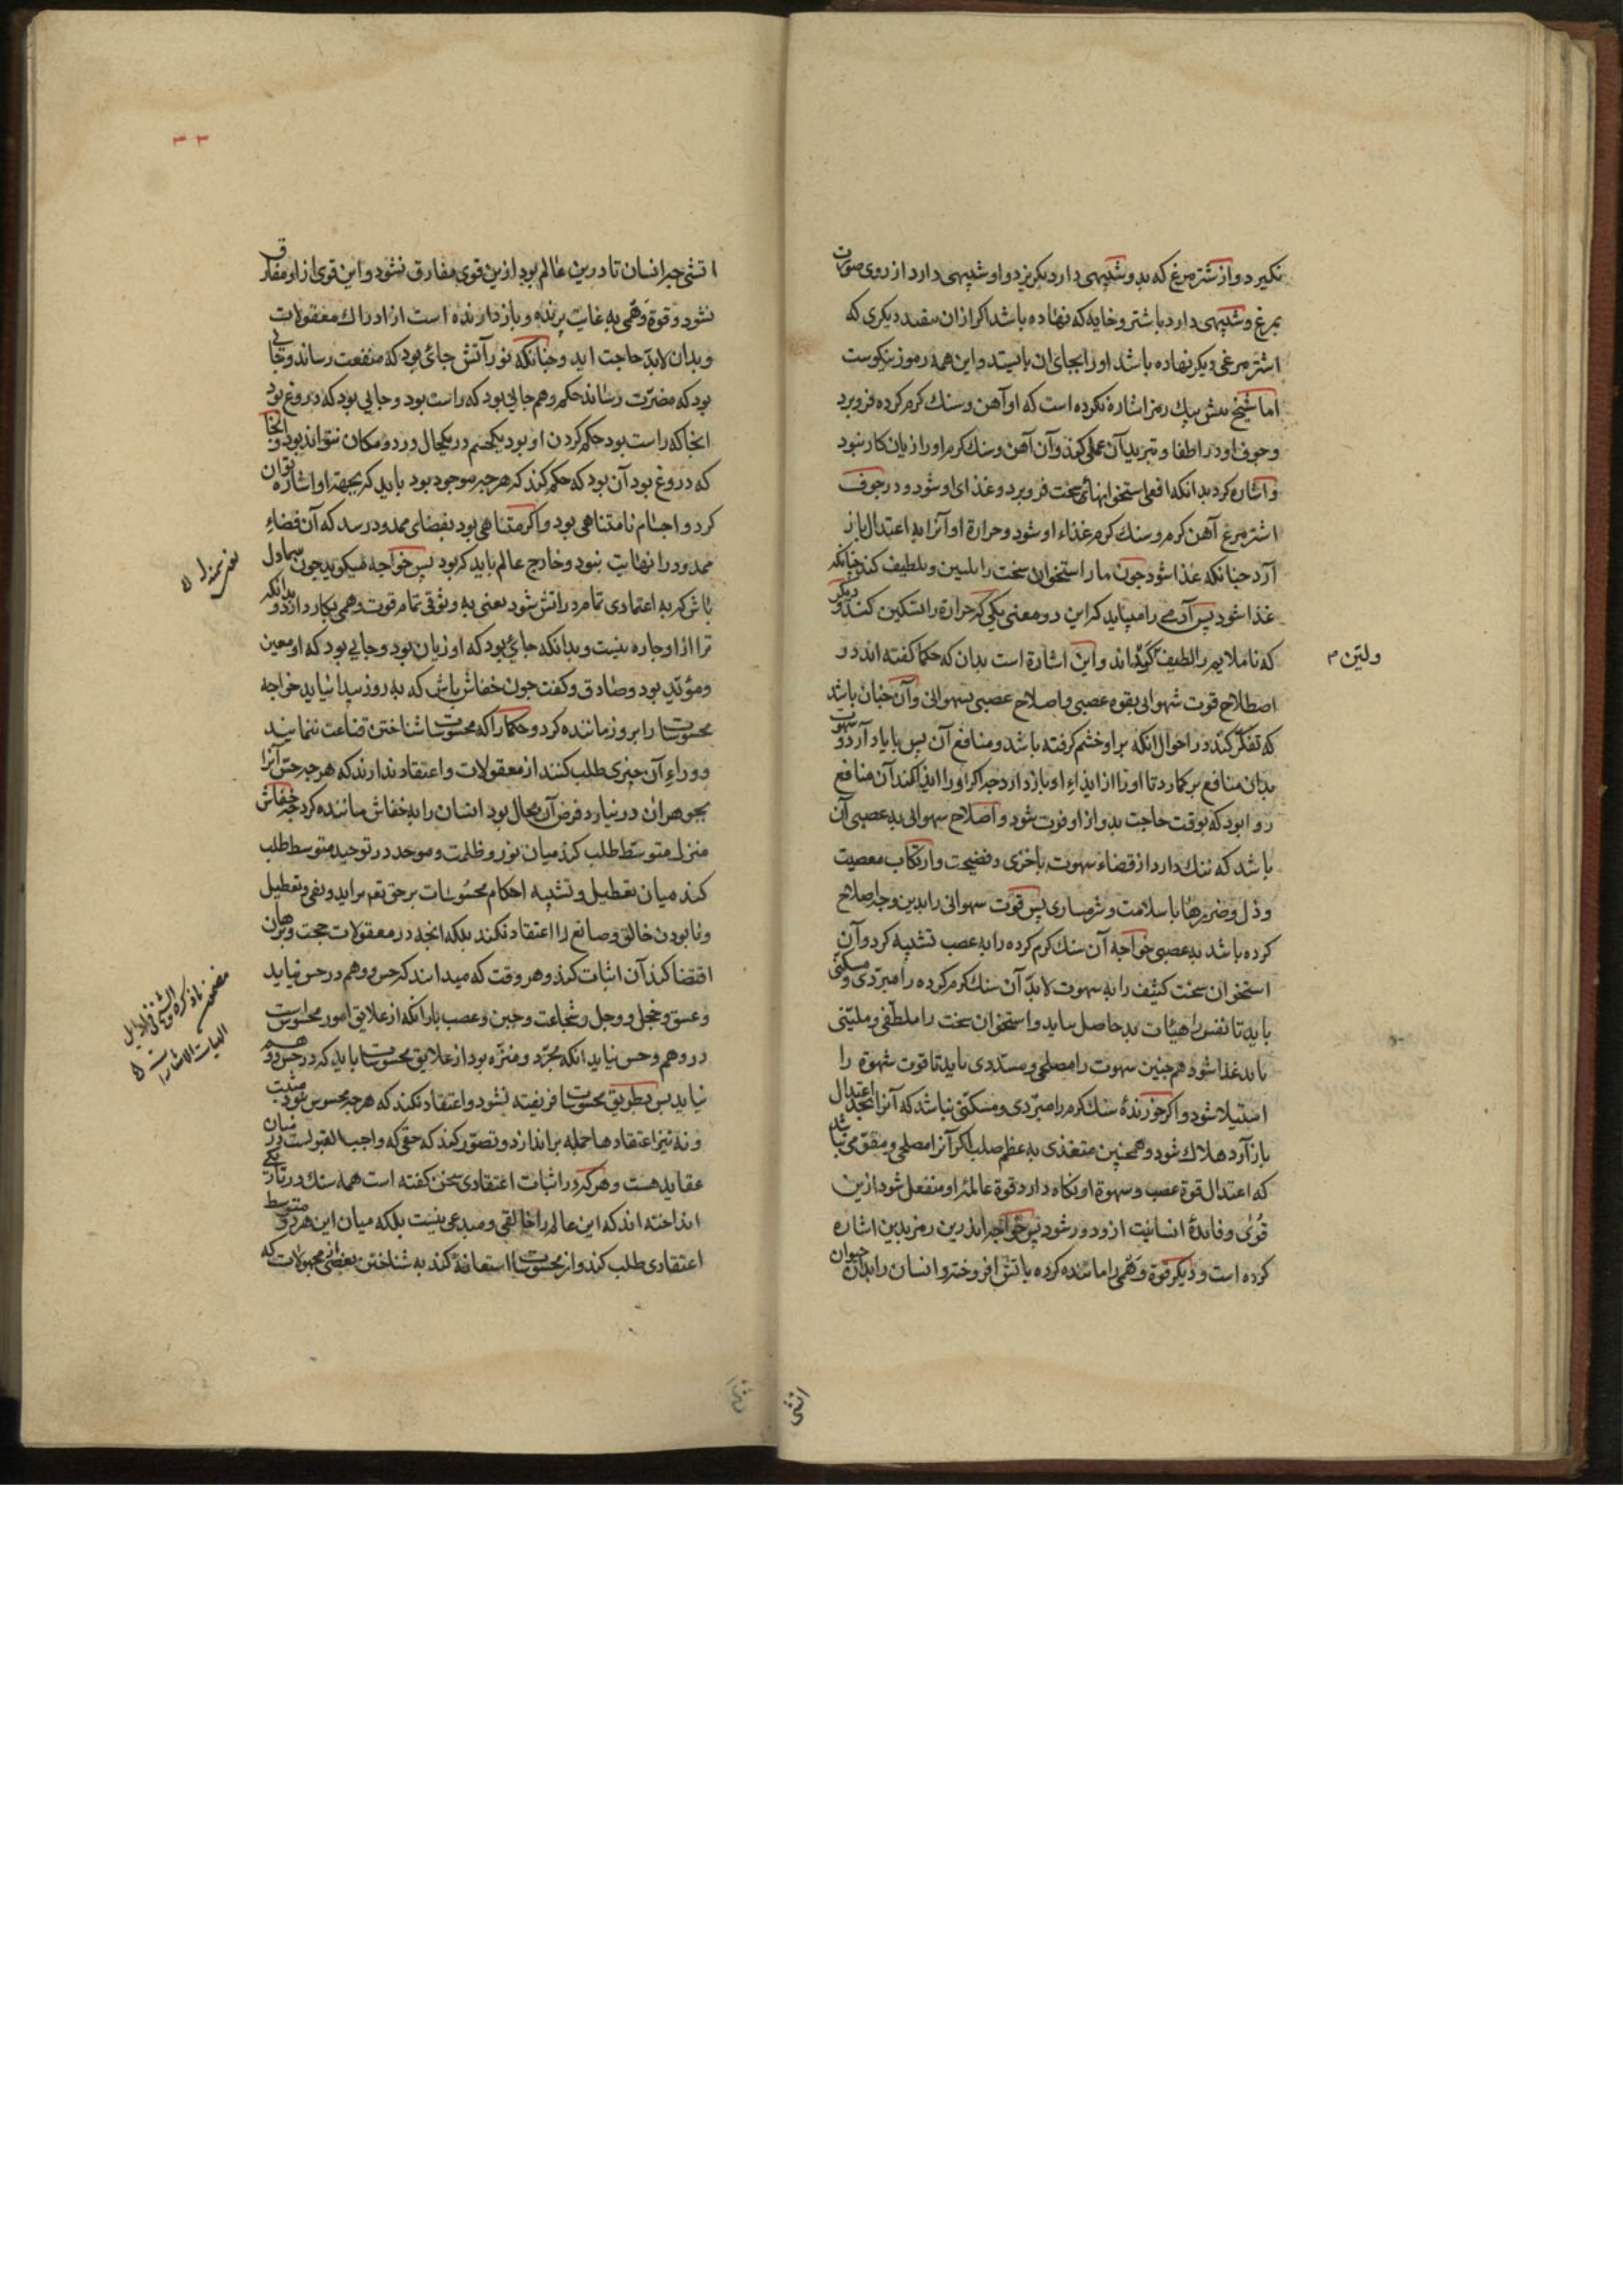 نکیرد و از شتر مرغ که بدو شبیهی دارد بکریزد و او شبیهی دارد از روی صورت
بمرغ و شبیهی دارد باشتر و خایه که نهاده باشد اکر ازان بیفتد دیکری که
اشتر مرغی دیکر نهاده باشد او را بجای آن بایستد و این همه رموز نیکوست
اما شیخ بیش بیک رمز اشاره نکرده است که او آهن و سنک کرم کرده فرو برد
و جوف او در اطفا و تبرید آن عملی کند و آن آهن و سنک کرم او را زیان کار نبود
و اشاره کرد بدانکه افعی استخوانهای سخت فرو برد و غذای او شود و در جوف
اشتر مرغ آهن کرم و سنک کرم غذاء او شود و حرارة او آنرا به اعتدال باز
آرد چنانکه غذا شود چون مار استخوان سخت را بلیین و بلطیف کند چنانکه
غذا شود پس آدمی را میباید که این دو معنی یکی که حرارة را تسکین کند و دیکر
که ناملایم را لطیف کرداند و این اشارة است بدان که حکما کفته اند در
ولیّن م
اصطلاح قوت شهوانی بقوه غضبی و اصلاح غضبی بشهوانی و آن چنان باشد
که تفکر کند در احوال آنکه بر او خشم کرفته باشد و منافع آن بس با یاد آرد و شهوت
بدان منافع بر کمارد تا او را از ایذاء او باز دارد چه اکر او را ایذا کند آن منافع
روا بود که بوقت حاجت بدو از او فوت شود و اصلاح شهوانی به غضبی آن
باشد که ننک دارد از قضاء شهوت باخزی و فضیحت و ارتکاب معصیت
و ذل و ضررها با سلامت و شرمساری پس قوت شهوانی را بدین وجه اصلاح
کرده باشد به غضبی خواجه آن سنک کرم کرده را به غضب تشبیه کرد و آن
استخوان سخت کثیف را به شهوت لابد آن سنک کرم کرده را مبرّدی و مسکنی
باید تا نفس را هیئات بد حاصل نیاید و استخوان سخت را ملطّفی و ملیّنی
باید غذا شود هم چنین شهوت را مصلحی و مسدّدی باید تا قوت شهوة را
استیلا شود و اکر خورندۀ سنک کرم را مبرّدی و مسکنی نباشد که آنرا بحد اعتدال
باز آرد هلاک شود و همچنین متغذی به عظم صلب اکر آنرا مصلحی و مقوّمی نباشد
که اعتدال قوة غضب و شهوة او نکاه دارد قوة عالمۀ او منفعل شود ازین
قُوی و فایدۀ انسانیت ازو دور شود پس خواجه اندرین رمز بدین اشاره
کرده است و دیکر قوة وَهْمی را مانندۀ کرده باتش افروخته و انسان را بدان حیوان
اتشی
۳۳
اتشی چه انسان تا درین عالم بود ازین قوی مفارق نشود و این قوی از او مفارق
نشود و قوة وَهْمی به غایت برنده و باز دارنده است از ادراک معقولات
و بدان لابدّ حاجت آید و چنانکه نور آتش جائی بود که منفعت رساند و جائی
بود که مضرّت رساند حکم وهم جایی بود که راست بود و جایی بود که دروغ بود
انجا که راست بود حکم کردن او بود یکجسم در یکحال در دو مکان نتواند بود و انجا
که دروغ بود آن بود که حکم کند که هر چه موجود بود باید که بجهة او اشاره توان
کرد و اجسام نامتناهی بود و اکر متناهی بود بفضای ممدود رسد که آن فضاء
ممدود را نهایت نبود و خارج عالم باید که بود پس خواجه میکوید چون سماول
باش که به اعتمادی تمام در اتش شود یعنی به وثوقی تمام قوت وهمی بکار دار و بدانکه
ترا از او چاره نیست و بدانکه جائی بود که او زیان بود و جایی بود که او معین
و مؤیّد بود و صادق و کفت چون خفاش باش که به روز بیدا نیاید خواجه
محسوسات را بروز ماننده کرد و حکما را که محسوسات شناختن قناعت ننمایند
و وراءِ آن چیزی طلب کنند از معقولات و اعتقاد ندارند که هر چه حس آنرا
بجوهر آن در نیارد فرض آن محال بود انسان را به خفاش ماننده کرد چه خفاش
منزل متوسّط طلب کرد میان نور و ظلمت و موحد در توحید متوسط طلب
کند میان تعطیل و تشبیه احکام محسُوسات بر حق تع براید و نفی و تعطیل
و نابودن خالق و صانع را اعتقاد نکند بلکه انجه در معقولات حجت و برهان
اقتضا کند آن اثبات کند و هر وقت که میداند که حس و وهم در حس نیاید
و عشق و خجل و وجل و شجاعت و جبن و غضب با آنکه از علایق امور محسوس است
در وهم و حس نیاید انکه مجرّد و منزّه بود از علایق محسوسات باید که در حس و وهم
نیاید پس بطریق محسوسات فریفته نشود و اعتقاد نکند که هر چه محسوس نبود مثبت
و نه نیز اعتقادها جمله براندازد و تصوّر کند که حقی که واجب القبولست در میان
عقاید هست و هر که در اثبات اعتقادی سخن کفته است همه سنک در تاریکی
انداخته اند که این عالم را خالقی و مبدعی نیست بلکه میان این هر دو متوسط
اعتقادی طلب کند و از محسوسات استعانة کند به شناختن بعضی از مجهولات که